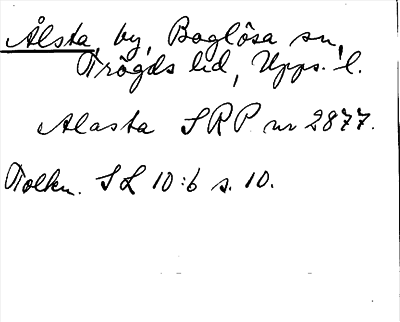 Ålsta, by, Boglösa sn,
Trögds hd, Upps. l.
Alasta SRP nr 2877.
Tolkn. SL 10:6 s. 10.